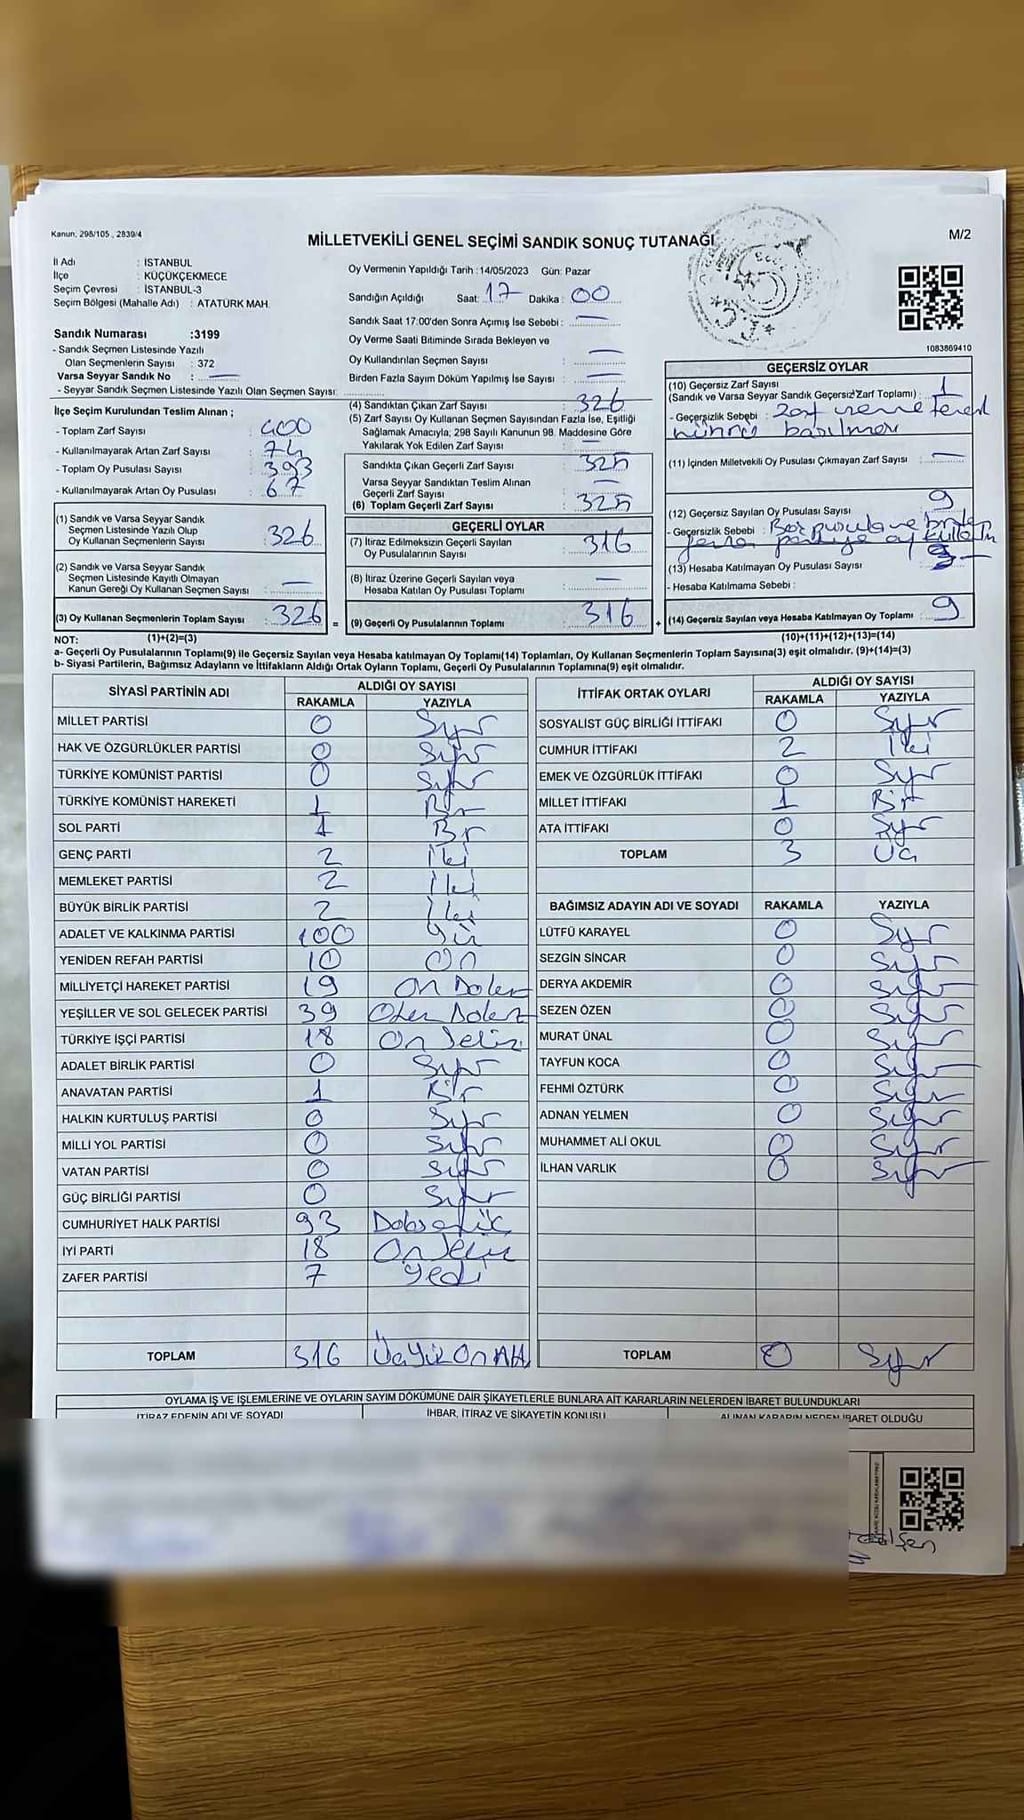 Kanun. 298/105 , 2839/4
MİLLETVEKİLİ GENEL SEÇİMİ SANDIK SONUÇ TUTANAĞI
M/2
İl Adı : İSTANBUL
İlçe : KÜÇÜKÇEKMECE
Seçim Çevresi : İSTANBUL-3
Seçim Bölgesi (Mahalle Adı) : ATATÜRK MAH.
Oy Vermenin Yapıldığı Tarih :14/05/2023 Gün: Pazar
Sandığın Açıldığı Saat: 17 Dakika : 00
Sandık Saat 17:00'den Sonra Açımış İse Sebebi : —
Oy Verme Saati Bitiminde Sırada Bekleyen ve
Oy Kullandırılan Seçmen Sayısı : —
Birden Fazla Sayım Döküm Yapılmış İse Sayısı : —
1083869410
Sandık Numarası :3199
- Sandık Seçmen Listesinde Yazılı
Olan Seçmenlerin Sayısı : 372
Varsa Seyyar Sandık No : —
- Seyyar Sandık Seçmen Listesinde Yazılı Olan Seçmen Sayısı:
İlçe Seçim Kurulundan Teslim Alınan ;
- Toplam Zarf Sayısı : 400
- Kullanılmayarak Artan Zarf Sayısı : 74
- Toplam Oy Pusulası Sayısı : 393
- Kullanılmayarak Artan Oy Pusulası : 67
(1) Sandık ve Varsa Seyyar Sandık
Seçmen Listesinde Yazılı Olup
Oy Kullanan Seçmenlerin Sayısı : 326
(2) Sandık ve Varsa Seyyar Sandık
Seçmen Listesinde Kayıtlı Olmayan
Kanun Gereği Oy Kullanan Seçmen Sayısı : —
(3) Oy Kullanan Seçmenlerin Toplam Sayısı : 326 =
(4) Sandıktan Çıkan Zarf Sayısı : 326
(5) Zarf Sayısı Oy Kullanan Seçmen Sayısından Fazla İse, Eşitliği
Sağlamak Amacıyla, 298 Sayılı Kanunun 98. Maddesine Göre
Yakılarak Yok Edilen Zarf Sayısı : —
Sandıkta Çıkan Geçerli Zarf Sayısı : 325
Varsa Seyyar Sandıktan Teslim Alınan
Geçerli Zarf Sayısı : —
(6) Toplam Geçerli Zarf Sayısı : 325
GEÇERLİ OYLAR
(7) İtiraz Edilmeksizin Geçerli Sayılan
Oy Pusulalarının Sayısı : 316
(8) İtiraz Üzerine Geçerli Sayılan veya
Hesaba Katılan Oy Pusulası Toplamı : —
(9) Geçerli Oy Pusulalarının Toplamı : 316 +
GEÇERSİZ OYLAR
(10) Geçersiz Zarf Sayısı
(Sandık ve Varsa Seyyar Sandık Geçersiz Zarf Toplamı) : 1
- Geçersizlik Sebebi : Zarf
(11) İçinden Milletvekili Oy Pusulası Çıkmayan Zarf Sayısı : —
(12) Geçersiz Sayılan Oy Pusulası Sayısı : 9
- Geçersizlik Sebebi : Boş pusula ve birden
fazla partiye oy
(13) Hesaba Katılmayan Oy Pusulası Sayısı : —
- Hesaba Katılmama Sebebi :
(14) Geçersiz Sayılan veya Hesaba Katılmayan Oy Toplamı : 9
NOT: (1)+(2)=(3) (10)+(11)+(12)+(13)=(14)
a- Geçerli Oy Pusulalarının Toplamı(9) ile Geçersiz Sayılan veya Hesaba katılmayan Oy Toplamı(14) Toplamları, Oy Kullanan Seçmenlerin Toplam Sayısına(3) eşit olmalıdır. (9)+(14)=(3)
b- Siyasi Partilerin, Bağımsız Adayların ve İttifakların Aldığı Ortak Oyların Toplamı, Geçerli Oy Pusulalarının Toplamına(9) eşit olmalıdır.
SİYASİ PARTİNİN ADI ALDIĞI OY SAYISI
RAKAMLA YAZIYLA
MİLLET PARTİSİ 0 Sıfır
HAK VE ÖZGÜRLÜKLER PARTİSİ 0 Sıfır
TÜRKİYE KOMÜNİST PARTİSİ 0 Sıfır
TÜRKİYE KOMÜNİST HAREKETİ 1 Bir
SOL PARTİ 1 Bir
GENÇ PARTİ 2 İki
MEMLEKET PARTİSİ 2 İki
BÜYÜK BİRLİK PARTİSİ 2 İki
ADALET VE KALKINMA PARTİSİ 100 Yüz
YENİDEN REFAH PARTİSİ 10 On
MİLLİYETÇİ HAREKET PARTİSİ 19 On Dokuz
YEŞİLLER VE SOL GELECEK PARTİSİ 39 Otuz Dokuz
TÜRKİYE İŞÇİ PARTİSİ 18 On Sekiz
ADALET BİRLİK PARTİSİ 0 Sıfır
ANAVATAN PARTİSİ 1 Bir
HALKIN KURTULUŞ PARTİSİ 0 Sıfır
MİLLİ YOL PARTİSİ 0 Sıfır
VATAN PARTİSİ 0 Sıfır
GÜÇ BİRLİĞİ PARTİSİ 0 Sıfır
CUMHURİYET HALK PARTİSİ 93 Doksan Üç
İYİ PARTİ 18 On Sekiz
ZAFER PARTİSİ 7 Yedi
TOPLAM 316 Üçyüz On Altı
İTTİFAK ORTAK OYLARI ALDIĞI OY SAYISI
RAKAMLA YAZIYLA
SOSYALİST GÜÇ BİRLİĞİ İTTİFAKI 0 Sıfır
CUMHUR İTTİFAKI 2 İki
EMEK VE ÖZGÜRLÜK İTTİFAKI 0 Sıfır
MİLLET İTTİFAKI 1 Bir
ATA İTTİFAKI 0 Sıfır
TOPLAM 3 Üç
BAĞIMSIZ ADAYIN ADI VE SOYADI RAKAMLA YAZIYLA
LÜTFÜ KARAYEL 0 Sıfır
SEZGİN SİNCAR 0 Sıfır
DERYA AKDEMİR 0 Sıfır
SEZEN ÖZEN 0 Sıfır
MURAT ÜNAL 0 Sıfır
TAYFUN KOCA 0 Sıfır
FEHMİ ÖZTÜRK 0 Sıfır
ADNAN YELMEN 0 Sıfır
MUHAMMET ALİ OKUL 0 Sıfır
İLHAN VARLIK 0 Sıfır
TOPLAM 0 Sıfır
OYLAMA İŞ VE İŞLEMLERİNE VE OYLARIN SAYIM DÖKÜMÜNE DAİR ŞİKAYETLERLE BUNLARA AİT KARARLARIN NELERDEN İBARET BULUNDUKLARI
İTİRAZ EDENİN ADI VE SOYADI İHBAR, İTİRAZ VE ŞİKAYETİN KONUSU ALINAN KARARIN NEDEN İBARET OLDUĞU